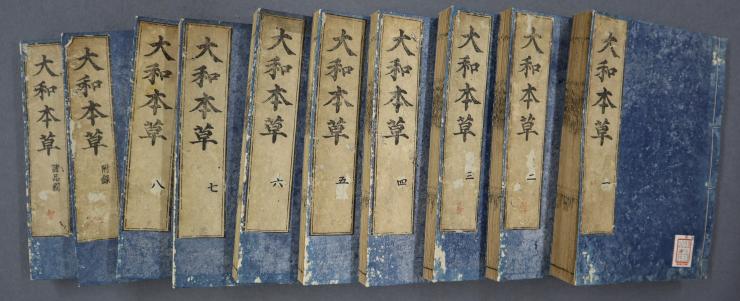 大和本草 一
大和本草 二
大和本草 三
大和本草 四
大和本草 五
大和本草 六
大和本草 七
大和本草 八
大和本草 附録
大和本草 諸品圖